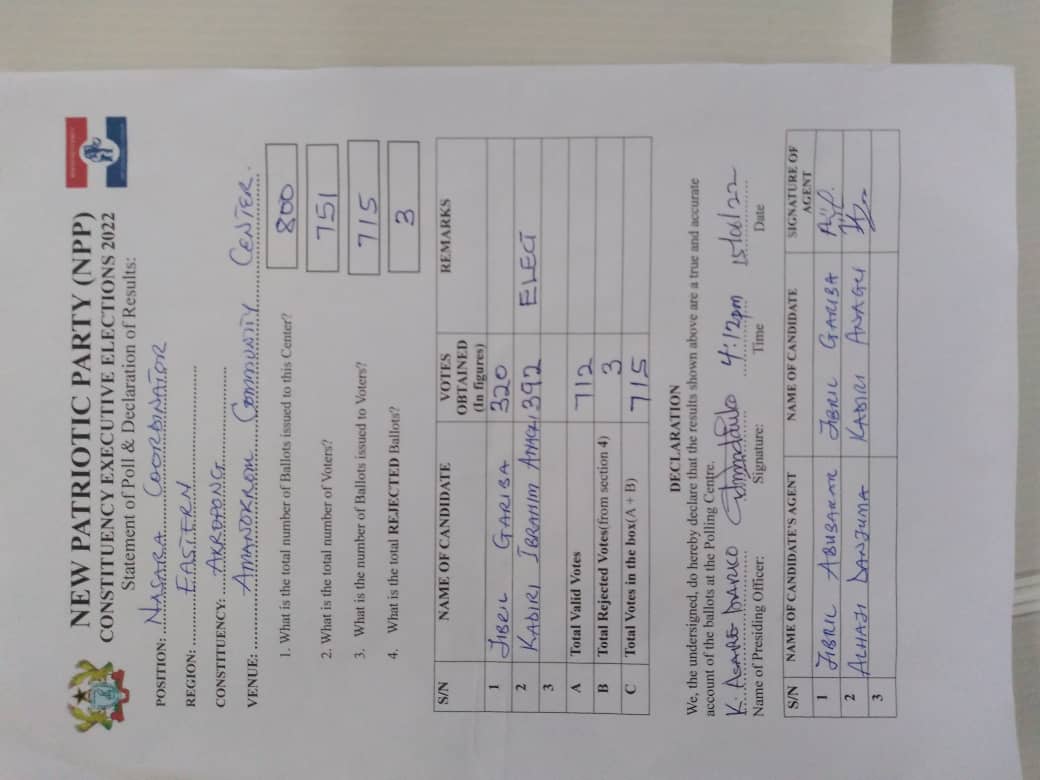 NEW PATRIOTIC PARTY (NPP)
CONSTITUENCY EXECUTIVE ELECTIONS 2022
Statement of Poll & Declaration of Results:
POSITION: NASARA COORDINATOR
REGION: EASTERN
CONSTITUENCY: AKROPONG
VENUE: AMANOKROM COMMUNITY CENTER.
1. What is the total number of Ballots issued to this Center? 800
2. What is the total number of Voters? 751
3. What is the number of Ballots issued to Voters? 715
4. What is the total REJECTED Ballots? 3
S/N NAME OF CANDIDATE VOTES OBTAINED (In figures) REMARKS
1 JIBRIL GARIBA 320
2 KADIRI IBRAHIM ANAGU 392 ELECT
3
A Total Valid Votes 712
B Total Rejected Votes(from section 4) 3
C Total Votes in the box(A + B) 715
DECLARATION
We, the undersigned, do hereby declare that the results shown above are a true and accurate
account of the ballots at the Polling Centre.
K. ASARE DARKO 4:12pm 15/06/22
Name of Presiding Officer: Signature: Time Date
S/N NAME OF CANDIDATE'S AGENT NAME OF CANDIDATE SIGNATURE OF AGENT
1 JIBRIL ABUBAKAR JIBRIL GARIBA
2 ALHAJI DANJUMA KADIRI ANAGU
3